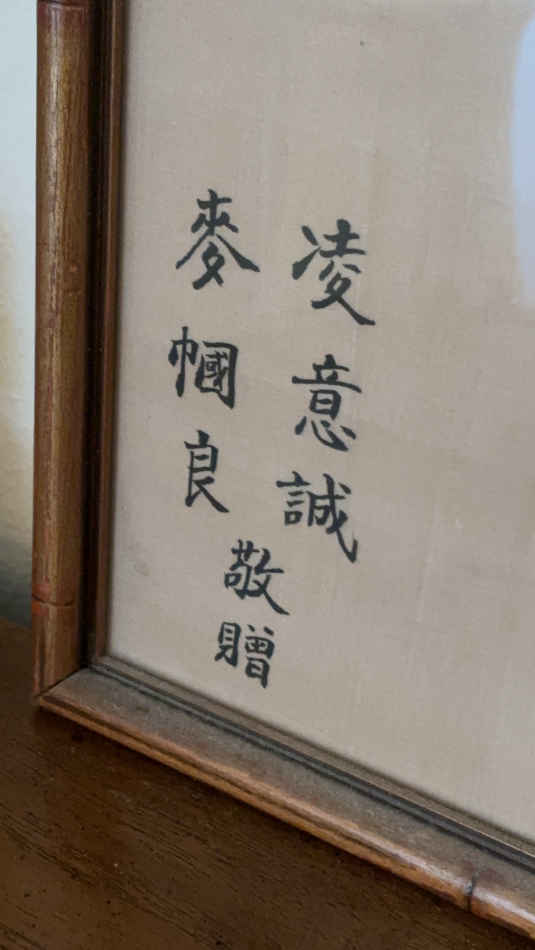 凌意誠
麥幗良
敬贈